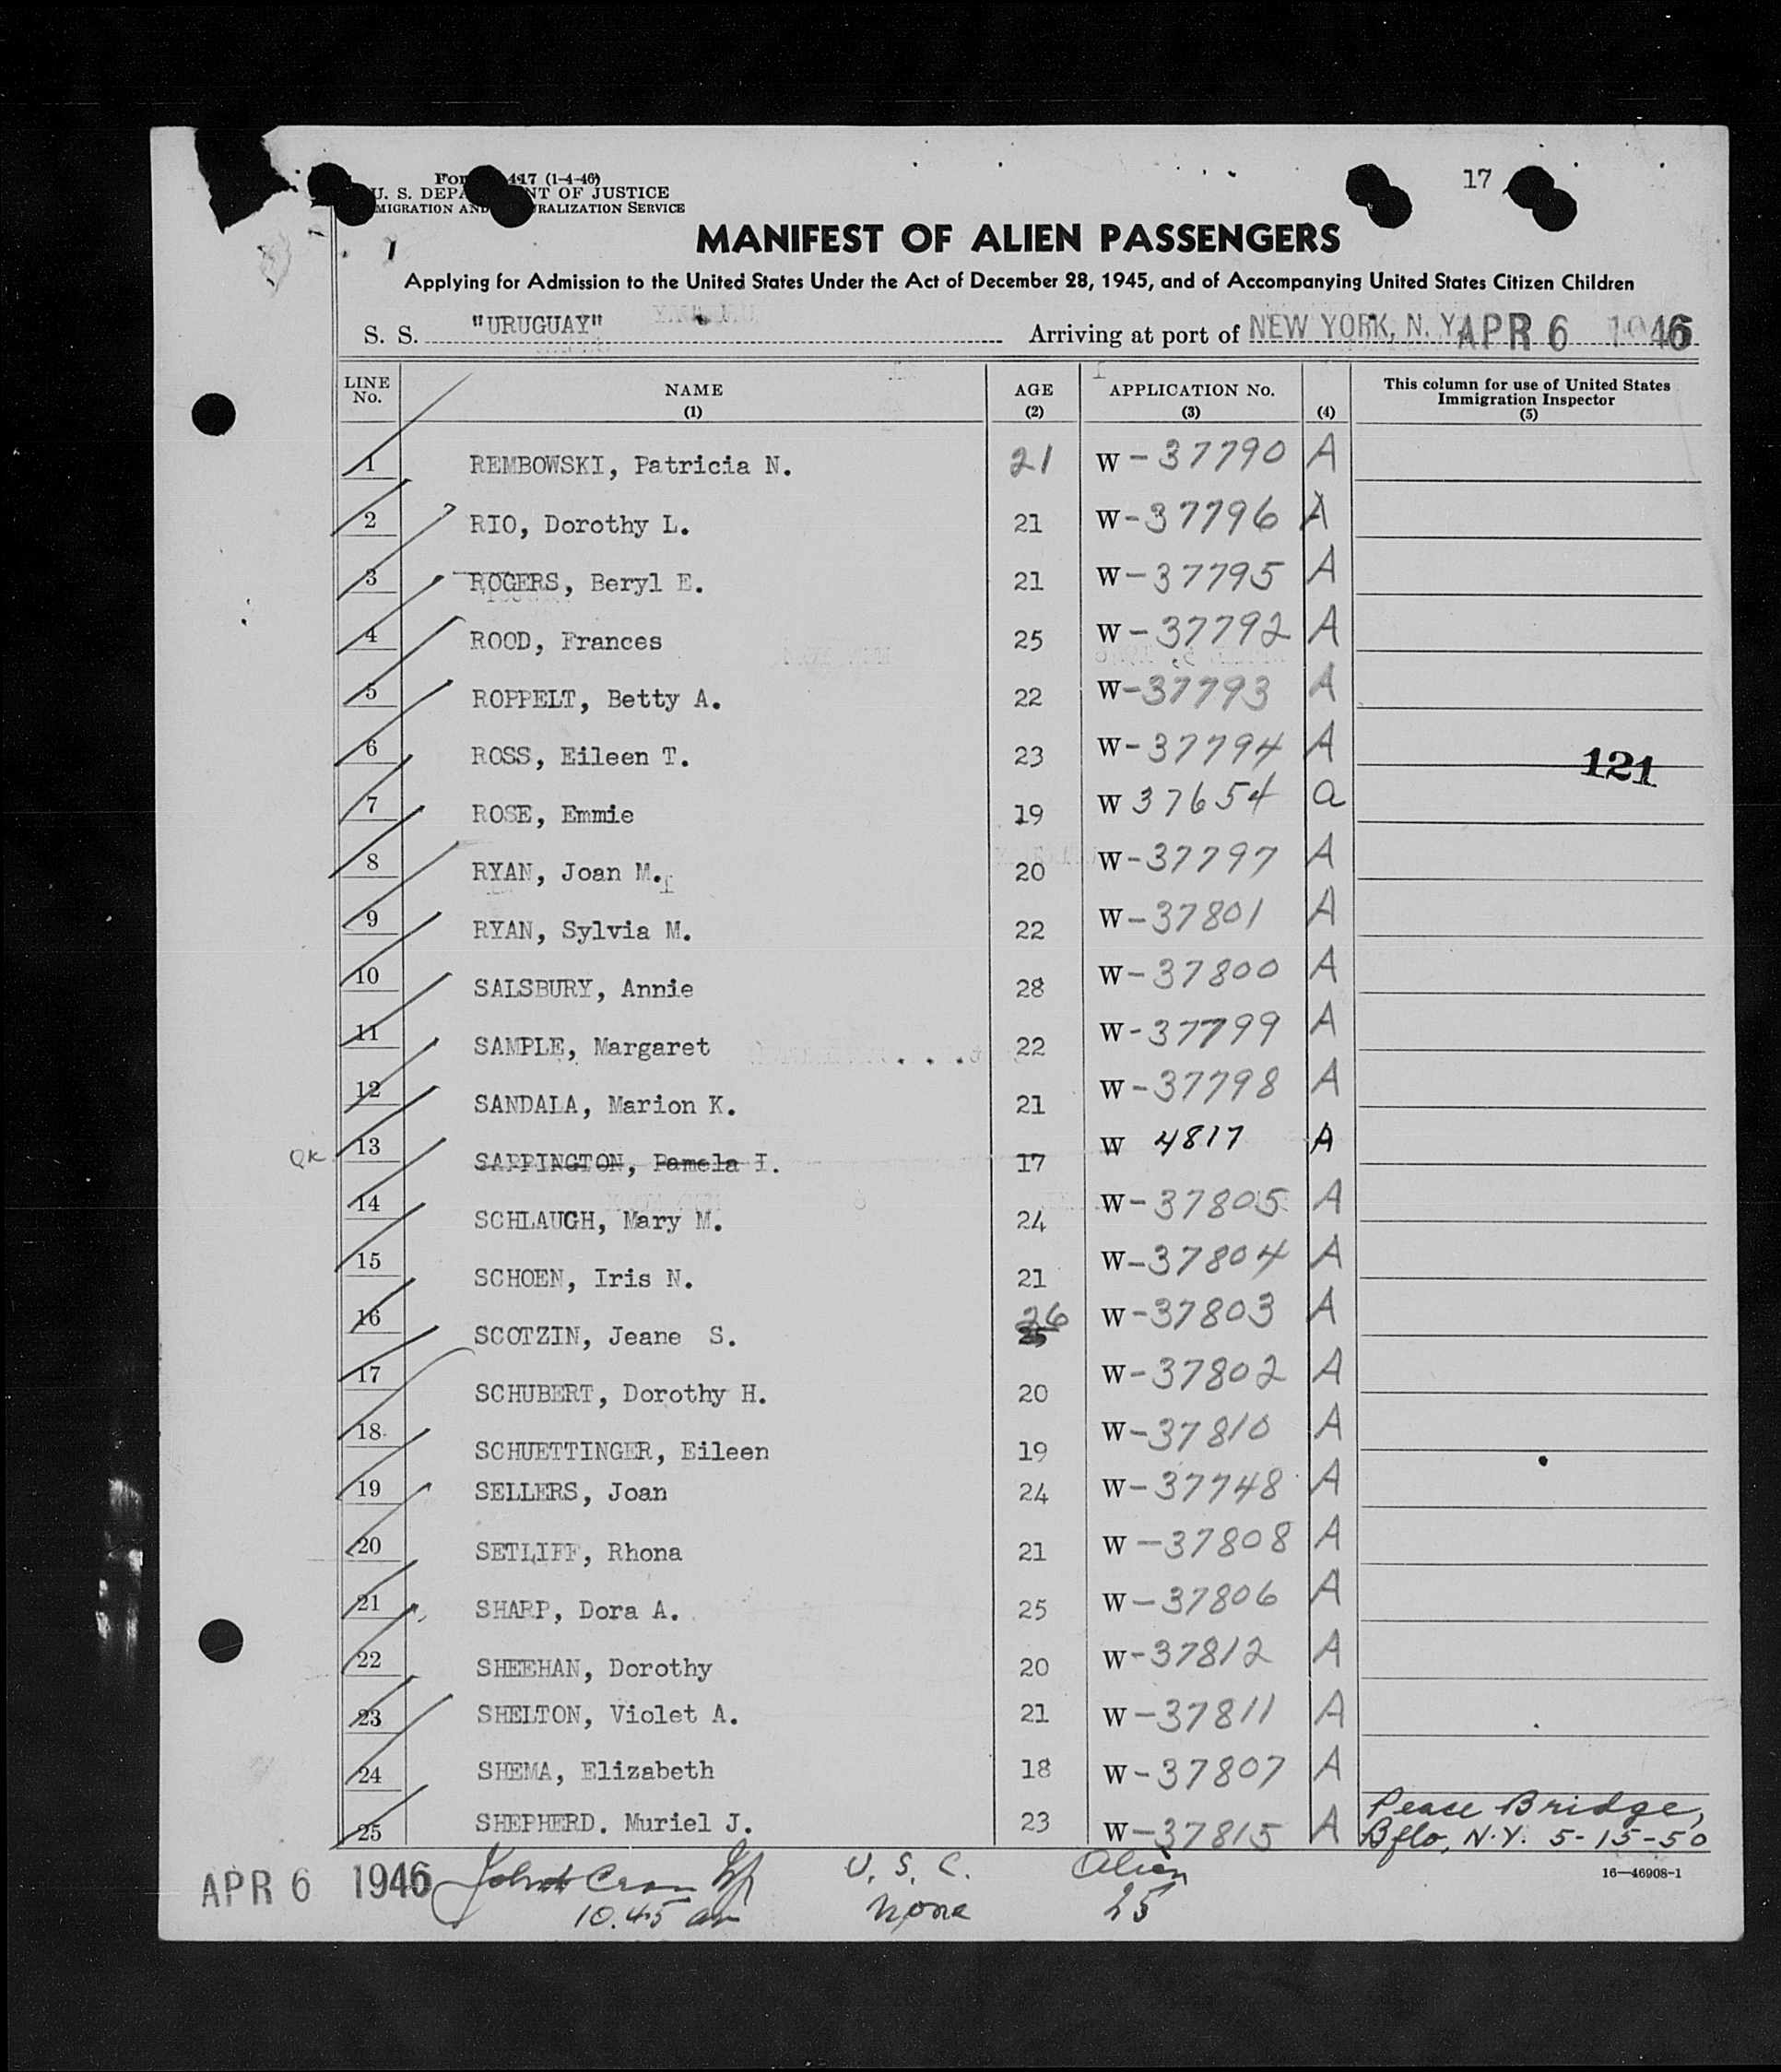 17
U. S. DEPA NT OF JUSTICE
MANIFEST OF ALIEN PASSENGERS
Applying for Admission to the United States Under the Act of December 28, 1945, and of Accompanying United States Citizen Children
S. S. "URUGUAY" Arriving at port of NEW YORK, N. Y. APR 6 1946
LINE No. NAME (1) AGE (2) APPLICATION No. (3) (4) This column for use of United States Immigration Inspector (5)
1 REMBOWSKI, Patricia N. 21 W-37790 A
2 RIO, Dorothy L. 21 W-37796 A
3 ROGERS, Beryl E. 21 W-37795 A
4 ROOD, Frances 25 W-37792 A
5 ROPPELT, Betty A. 22 W-37793 A
6 ROSS, Eileen T. 23 W-37794 A
121
7 ROSE, Emmie 19 W 37654 a
8 RYAN, Joan M. 20 W-37797 A
9 RYAN, Sylvia M. 22 W-37801 A
10 SALSBURY, Annie 28 W-37800 A
11 SAMPLE, Margaret 22 W-37799 A
12 SANDALA, Marion K. 21 W-37798 A
13 SAPPINGTON, Pamela I. 17 W 4817 A
14 SCHLAUGH, Mary M. 24 W-37805 A
15 SCHOEN, Iris N. 21 W-37804 A
16 SCOTZIN, Jeane S. 26 W-37803 A
17 SCHUBERT, Dorothy H. 20 W-37802 A
18 SCHUETTINGER, Eileen 19 W-37810 A
19 SELLERS, Joan 24 W-37748 A
20 SETLIFF, Rhona 21 W-37808 A
21 SHARP, Dora A. 25 W-37806 A
22 SHEEHAN, Dorothy 20 W-37812 A
23 SHELTON, Violet A. 21 W-37811 A
24 SHEMA, Elizabeth 18 W-37807 A
25 SHEPHERD. Muriel J. 23 W-37815 A Peace Bridge,
Bflo, N.Y. 5-15-50
16—46908-1
APR 6 1946 U. S. C. Alien
10.45 am none 25